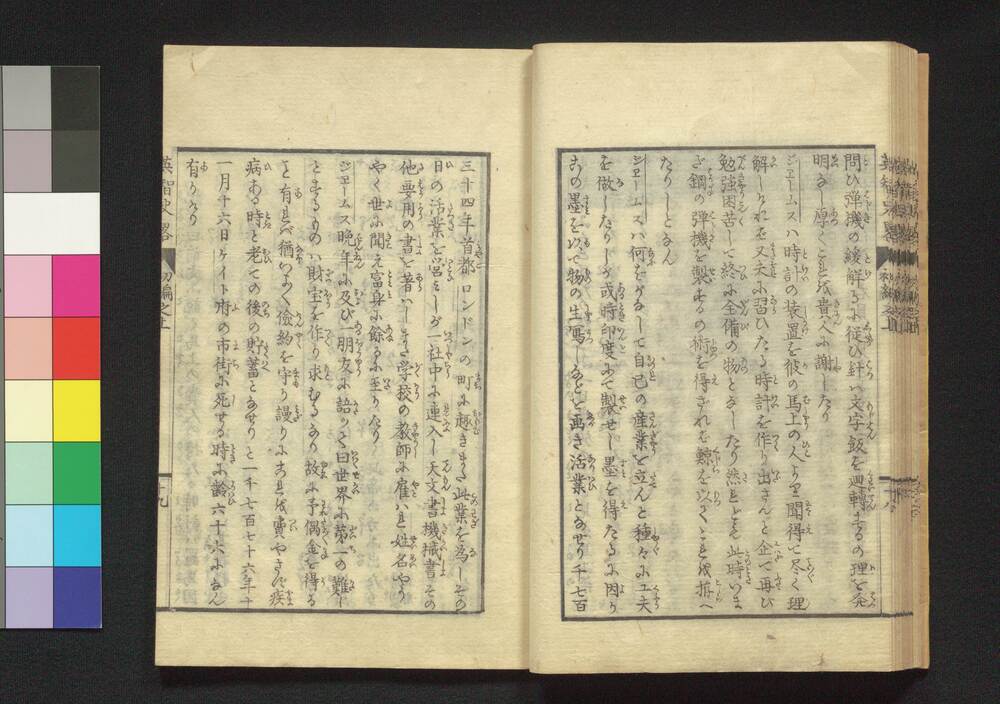 問ひ弾機の緩解るに従ひ針い文字飯を迴轉するの理を発
明なし厚くこれを貴人に謝したり
ジエームスハ時計の装置を彼の馬上の人より聞得て尽く理
解しけれを又夫に習ひたる時計を作り出さんと企て再び
勉強困苦して終に全備の物となしたり然れとも此時いま
ざ鋼の弾機を製するの術を得ざれを鯨を以てこれを拵へ
たりしとなん
ジエームスハ何をがなして自己の産業を立んと種々に工夫
を做したりしが或時印度にて製せし墨を得たるに因り
この墨を以て物の生寫しなどを画き活業となせり千七百
三十四年首都ロンドンの町に趣きまた此業を為しその
日の活業を営としが一社中に連入し天文書機械書その
他要用の書を著ハしまた学校の教師に雇ハれ姓名やう
やく世に聞え富身に餘るに至りたり
ジエームス晩年に及び一朋友に語りて曰世界に第一の難し
とするものハ財宝を作り求むるなり故に予偶金を得る
こと有れバ猶つよく倹約を守り謾りにこれを費やさず疾
病ある時と老ての後の貯蓄となせりと一千七百七十六年十
一月十六日ケイト府の市街に死せる時に齢六十六になん
有りけり
英智史畧 初編之上 十九